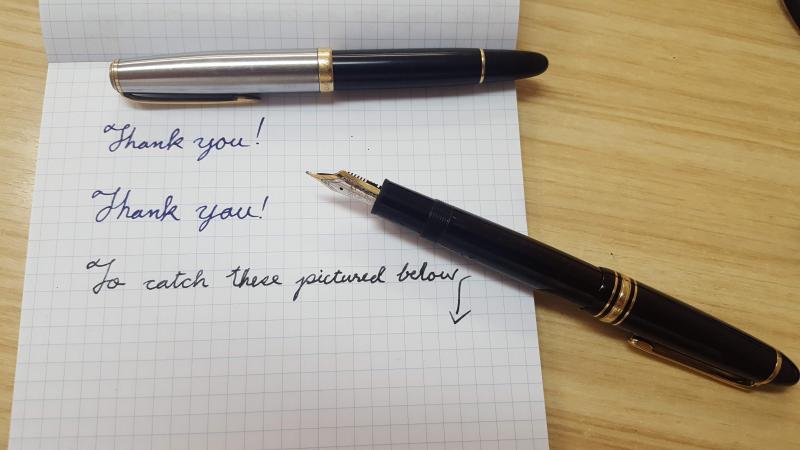 Thank you!
Thank you!
To catch these pictured below